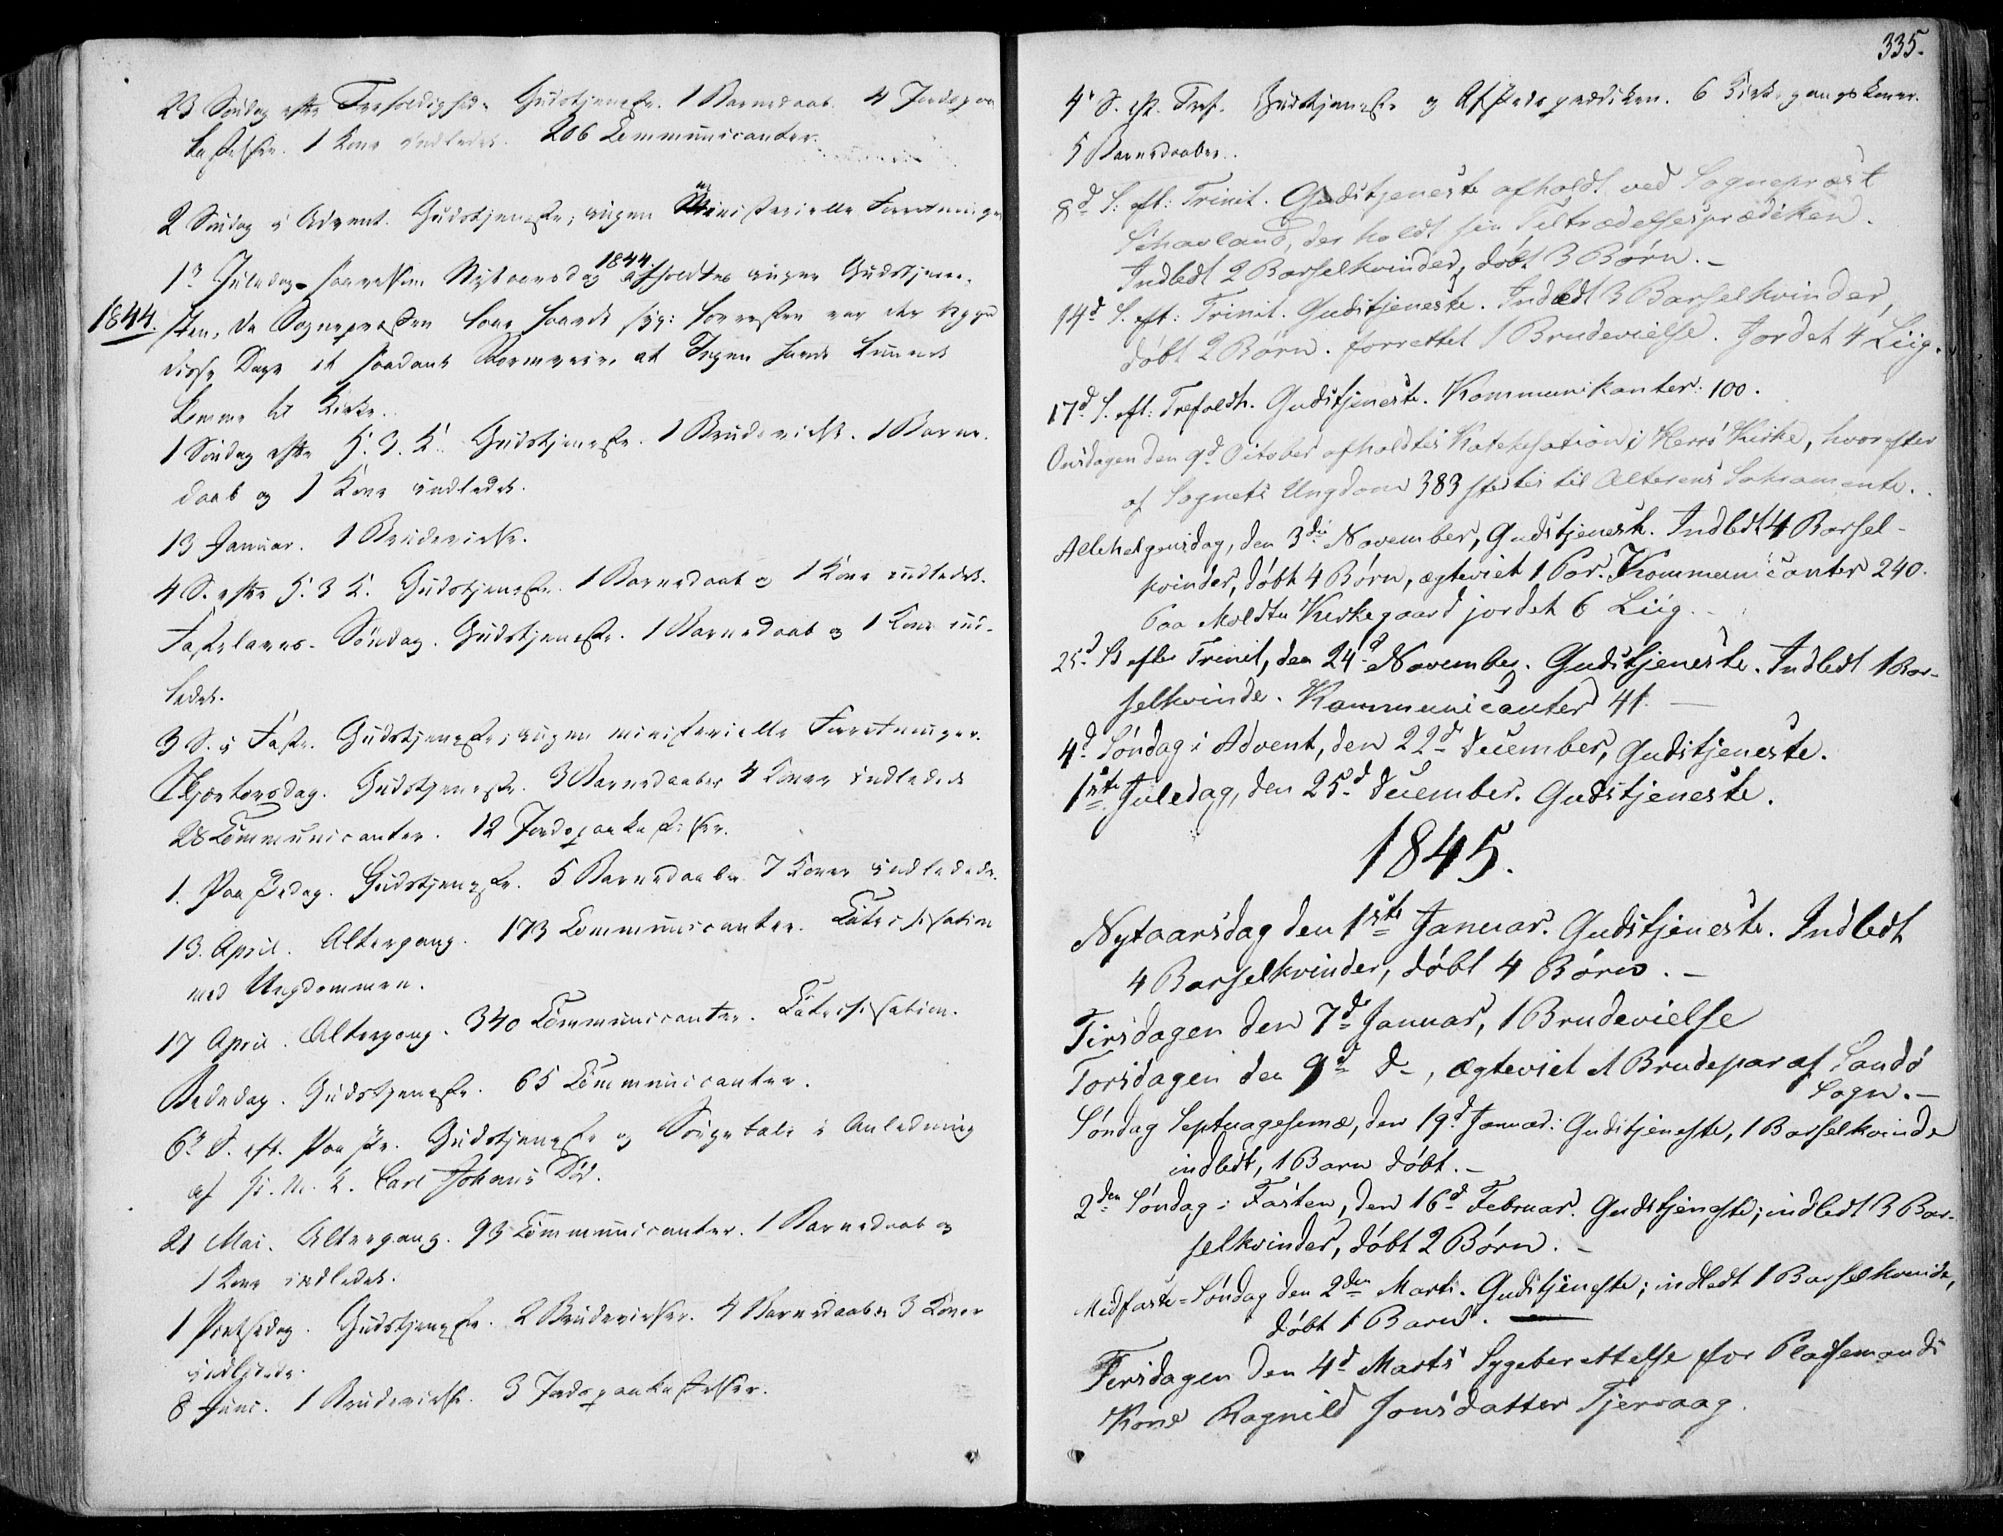 23 Søndag efter Trefoldighed. Gudstjeneste. 1 Barnedaab. 4 Jordspaa
kastelser. 1 Kone indledet. 206 Communicanter.
2 Søndag i Advent. Gudstjeneste; ingen Ministerielle Forretninger
1ste Juledag saavelsom Nytaarsdag 1844 afholdtes ingen Gudstjene-
1844. sten, da Sognepræsten laae haardt syg; foruden var der
disse Dage et saadant Stormveir, at Ingen havde kunnet
komme til Kirke.
1 Søndag efter H. 3. K. Gudstjeneste. 1 Brudevielse. 1 Barne-
daab og 1 Kone indledet.
13 Januar. 1 Brudevielse.
4 S. efter H. 3 K. Gudstjeneste. 1 Barnedaab og 1 Kone indledet.
Fastelavns-Søndag. Gudstjeneste. 1 Barnedaab og 1 Kone ind-
ledet.
3 S. i Faste. Gudstjeneste; ingen ministerielle Forretninger.
Skjærtorsdag. Gudstjeneste. 3 Barnedaaber 4 Koner indledede
28 Communicanter. 12 Jordspaakastelser.
1. Paaskedag. Gudstjeneste. 5 Barnedaaber 7 Koner indledede.
13. April. Altergang. 173 Communicanter. Catechisation
med Ungdommen.
17 April. Altergang. 340 Communicanter. Catechisation.
Bededag. Gudstjeneste. 65 Communicanter.
6te S. eft. Paaske. Gudstjeneste og Sørgetale i Anledning
af H. M. K. Carl Johans Død.
21 Mai. Altergang. 93 Communicanter. 1 Barnedaab og
1 Kone indledet.
1 Pintsedag. Gudstjeneste. 2 Brudevielser. 4 Barnedaaber 3 Koner
indledede.
8 Juni. 1 Brudevielse. 3 Jordspaakastelser.
335.
4de S. eft. Tref. Gudstjeneste og Afskedspræken. 6 Kirkegangskoner.
5 Barnedaaber.
8d S: eft: Trinit. Gudstjeneste afholdt ved Sognepræst
Schavland, der holdt sin Tiltrædelsesprædiken.
Indledt 2 Barselkvinder, døbt 3 Børn.
14d S. eft: Trinit. Gudstjeneste. Indledt 3 Barselkvinder,
døbt 2 Børn. forrettet 1 Brudevielse. Jordet 4 Liig.
17d S. eft: Trefoldh. Gudstjeneste. Kommunikanter: 100.
Onsdagen den 9d October afholdtes Katekesation i Herø Kirke, hvorefter
af Sognets Ungdom 383 stedtes til Alterens Sakramente.
Allehelgensdag, den 3die November, Gudstjeneste. Indledt 4 Barsel-
kvinder, døbt 4 Børn, ægteviet 1 Par. Kommunicanter 240.
Paa Moldtu Kirkegaard jordet 6 Liig.
25d S efter Trinit, den 24d November. Gudstjeneste. Indledt 1 Bar-
selkvinde. Kommunicanter 41.
4d Søndag i Advent, den 22d December, Gudstjeneste.
1ste Juledag, den 25d December. Gudstjeneste.
1845.
Nytaarsdag den 1ste Januar. Gudstjeneste. Indledt
4 Barselkvinder, døbt 4 Børn.
Tirsdagen den 7d Januar, 1 Brudevielse
Torsdagen den 9d d–, ægteviet 1 Brudepar af Sandø
Sogn.
Søndag Septuagesemæ, den 19d Januar: Gudstjeneste, 1 Barselkvinde
indledt, 1 Barn døbt.
2den Søndag i Fasten, den 16d Februar. Gudstjeneste; indledt 3 Bar-
selkvinder, døbt 2 Børn.
Midfaste-Søndag den 2den Marts. Gudstjeneste; indledt 1 Barselkvinde,
døbt 1 Barn.
Tirsdagen den 4d Marts Sygeberettelse for Pladsemands
Kone Ragnild Jonsdatter Tjervaag.